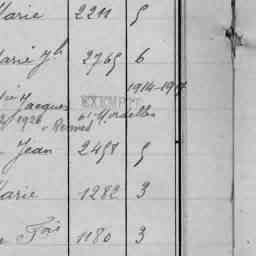 Marie 2211 5
Marie Jh 2765 6
1914-19
Jacques EXEMPT
1926 Rennes Mordelles
Jean 2458 5
Marie 1282 3
Fois 1180 3